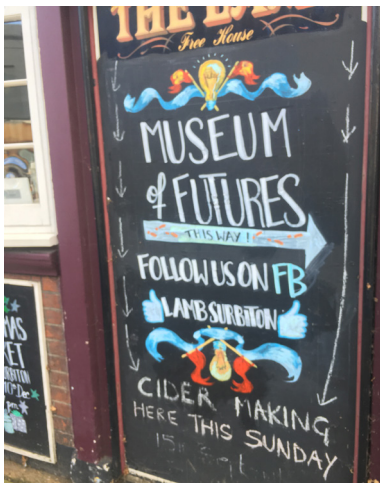 THE LAMB
Free House
MUSEUM
of FUTURES
THIS WAY!
FOLLOW US ON FB
LAMBSURBITON
CIDER MAKING
HERE THIS SUNDAY
15